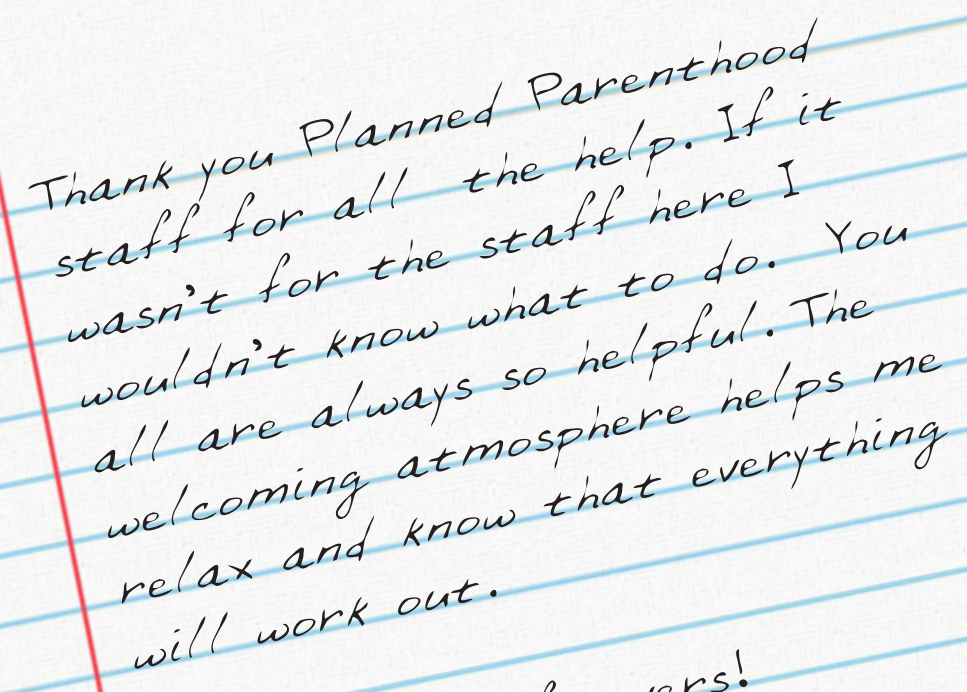 Thank you Planned Parenthood
staff for all the help. If it
wasn't for the staff here I
wouldn't know what to do. You
all are always so helpful. The
welcoming atmosphere helps me
relax and know that everything
will work out.